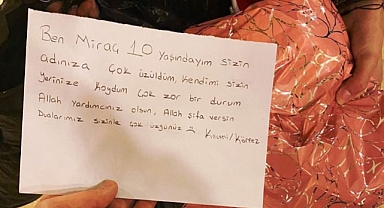 Ben Miraç 10 Yaşındayım sizin
adınıza çok üzüldüm, kendimi sizin
yerinize koydum çok zor bir durum
Allah yardımcınız olsun, Allah şifa versin
Dualarımız sizinle çok üzgünüz